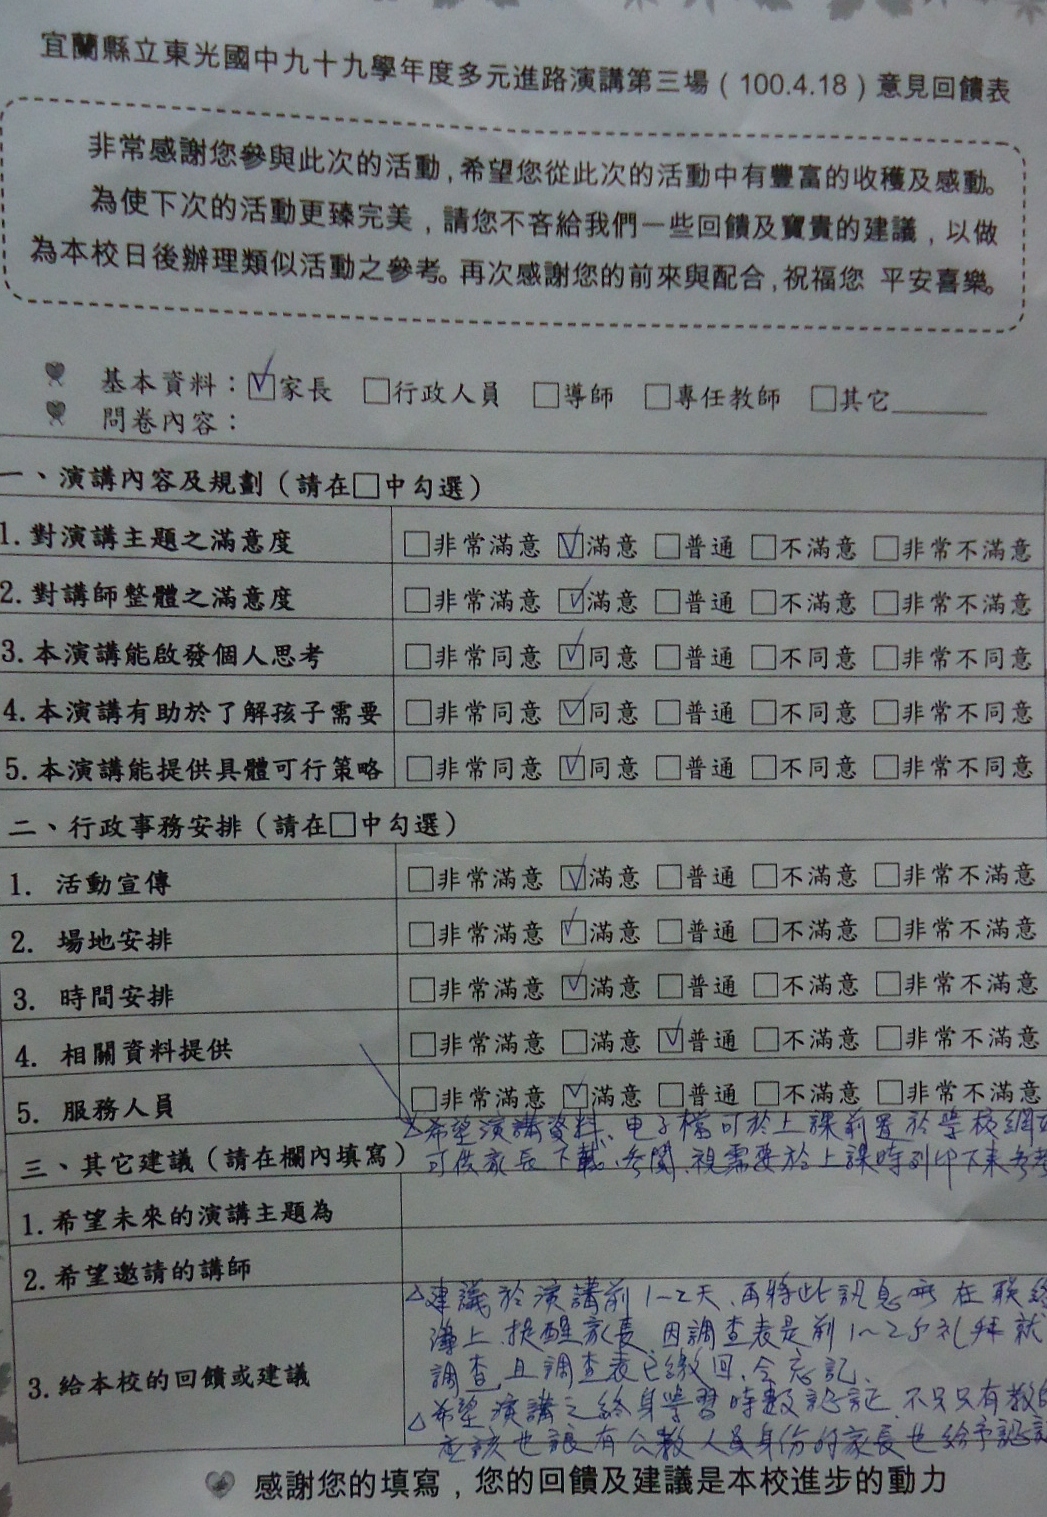 宜蘭縣立東光國中九十九學年度多元進路演講第三場（100.4.18）意見回饋表
非常感謝您參與此次的活動，希望您從此次的活動中有豐富的收穫及感動。
為使下次的活動更臻完美，請您不吝給我們一些回饋及寶貴的建議，以做
為本校日後辦理類似活動之參考。再次感謝您的前來與配合，祝福您 平安喜樂。
基本資料：☑家長 □行政人員 □導師 □專任教師 □其它______
問卷內容：
一、演講內容及規劃（請在□中勾選）
1.對演講主題之滿意度 □非常滿意 ☑滿意 □普通 □不滿意 □非常不滿意
2.對講師整體之滿意度 □非常滿意 ☑滿意 □普通 □不滿意 □非常不滿意
3.本演講能啟發個人思考 □非常同意 ☑同意 □普通 □不同意 □非常不同意
4.本演講有助於了解孩子需要 □非常同意 ☑同意 □普通 □不同意 □非常不同意
5.本演講能提供具體可行策略 □非常同意 ☑同意 □普通 □不同意 □非常不同意
二、行政事務安排（請在□中勾選）
1. 活動宣傳 □非常滿意 ☑滿意 □普通 □不滿意 □非常不滿意
2. 場地安排 □非常滿意 ☑滿意 □普通 □不滿意 □非常不滿意
3. 時間安排 □非常滿意 ☑滿意 □普通 □不滿意 □非常不滿意
4. 相關資料提供 □非常滿意 □滿意 ☑普通 □不滿意 □非常不滿意
5. 服務人員 □非常滿意 ☑滿意 □普通 □不滿意 □非常不滿意
希望演講資料、电子檔可於上課前置於學校網
三、其它建議（請在欄內填寫）
可供家長下載、參閱、視需要於上課時列印下來參考
1.希望未來的演講主題為
2.希望邀請的講師
3.給本校的回饋或建議
△建議於演講前1~2天、再將此訊息 在联絡
簿上、提醒家長、因調查表是前1~2 礼拜就
調查，且調查表已繳回，会忘記．
△希望演講之終身學習時數認証，不只只有教師
應該也讓有公教人員身份的家長也給予認証
感謝您的填寫，您的回饋及建議是本校進步的動力